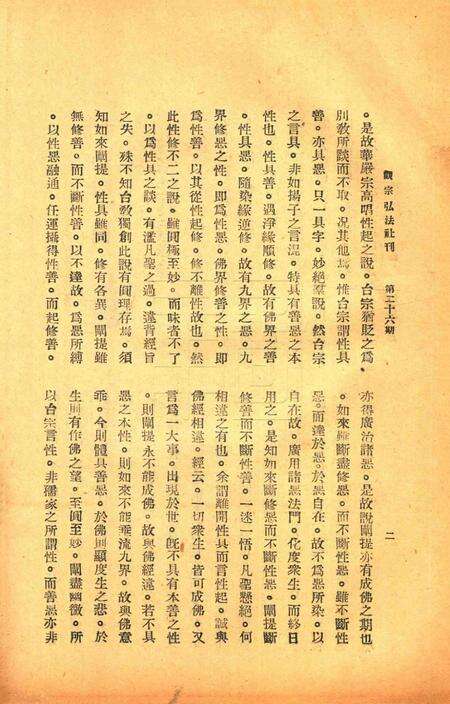 觀宗弘法社刊　第二十六期
二
。是故華嚴宗高唱性起之說。台宗猶貶之爲
別教所談而不取。况其他焉。惟台宗謂性具
善。亦具惡。只一具字。妙絕有說。然台宗
之言具。非如揚子之言混。特具有善惡之本
性也。性具善。遇淨緣順修。故有佛界之善
。性具惡。隨染緣逆修。故有九界之惡。九
界修惡之性。即爲性惡。佛界修善之性。即
爲性善。以其從性起修。修不離性故也。然
此性修不二之說。雖圓極至妙。而昧者不了
。以爲性具之談。有濫凡聖之過。違背經旨
之失。殊不知台教獨創此說有圓理存焉。須
知如來闡提。性具雖同。修有各異。闡提雖
無修善。而不斷性善。以不達故。爲惡所縛
。以性惡融通。任運攝得性善。而起修善。
亦得廣治諸惡。是故說闡提亦有成佛之期也
。如來雖斷盡修惡。而不斷性惡。雖不斷性
惡。而達於惡。於惡自在。故不爲惡所染。以
自在故。廣用諸惡法門。化度衆生。而終日
用之。是知如來斷修惡而不斷性惡。闡提斷
修善而不斷性善。一迷一悟。凡聖懸絕。何
相違之有也。余謂離開性具而言性起。誠與
佛經相違。經云。一切衆生。皆可成佛。又
言爲一大事。出現於世。旣不具有本善之性
。則闡提永不能成佛。故與佛經違。若不具
惡之本性。則如來不能垂流九界。故與佛意
乖。今則體具善惡。於佛則顯度生之悲。於
生則有作佛之望。至圓至妙。闡盡幽微。所
以台宗言性。非儒家之所謂性。而善惡亦非